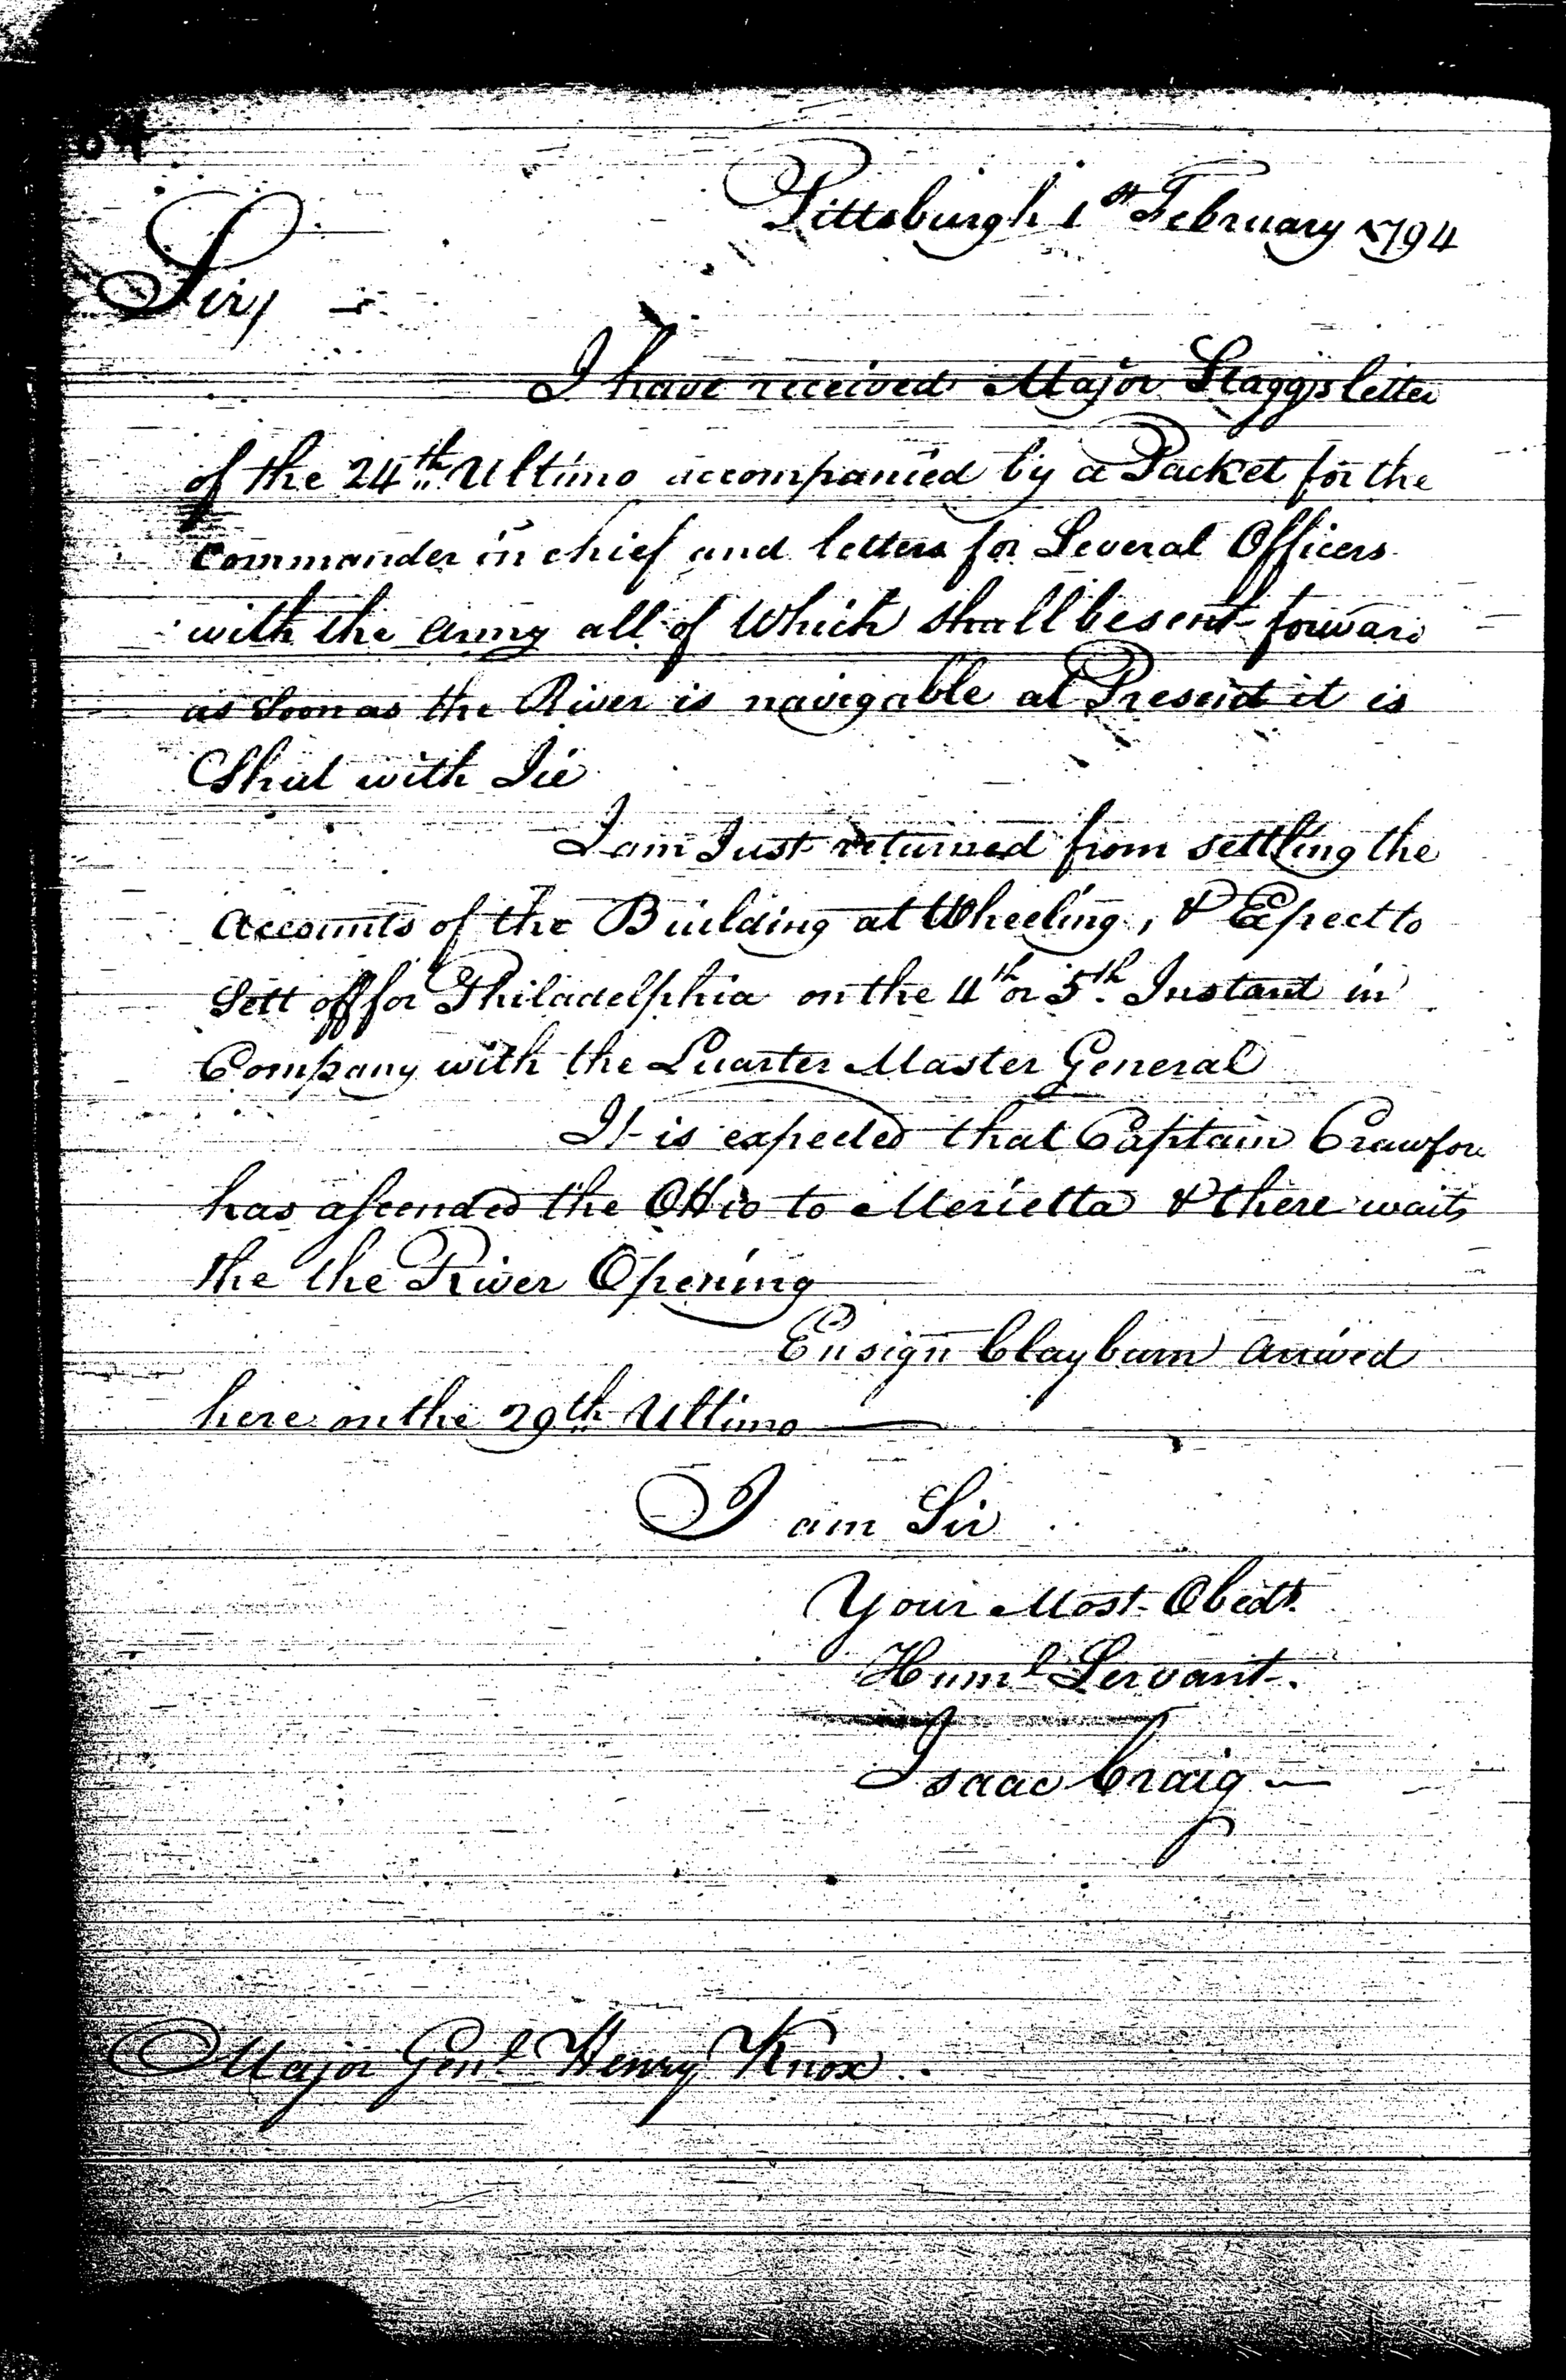 Pittsburgh 1st February 1794
Sir,
I have received Major Staggs letter
of the 24th Ultimo accompanied by a Packet for the
Commander in chief and letters for Several Officers
with the army all of Which shall be sent forward
as Soon as the River is navigable at Present it is
Shut with Ice
I am Just returned from settling the
Accounts of the Building at Wheeling, & Expect to
Sett off for Philadelphia on the 4th or 5th Instant in
Company with the Quarter Master General
It is expected that Captain Crawfor
has ascended the Ohio to Merietta & there waits
the the River Opening
Ensign Clayburn arrived
here on the 29th Ultimo
I am Sir
Your Most Obedt.
Huml Servant.
Isaac Craig
Major Genl Henry Knox.